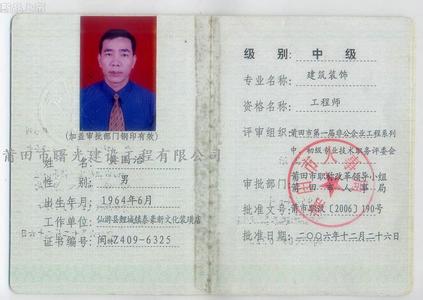 (加盖审批部门钢印有效)
莆田市曙光建设工程有限公司
姓 名:
性 别: 男
出生年月: 1964年6月
工作单位: 仙游县鲤城镇泰豪新文化装璜店
证书编号: 闽Z409-6325
级 别: 中 级
专业名称: 建筑装饰
资格名称: 工程师
评审组织: 莆田市第一届非公企业工程系列
中、初级专业技术职务评委会
审批部门: 莆田市职称改革领导小组
莆田市人事局
批准文号: 莆市职改[2006]190号
批准时间: 二〇〇六年十二月二十六日